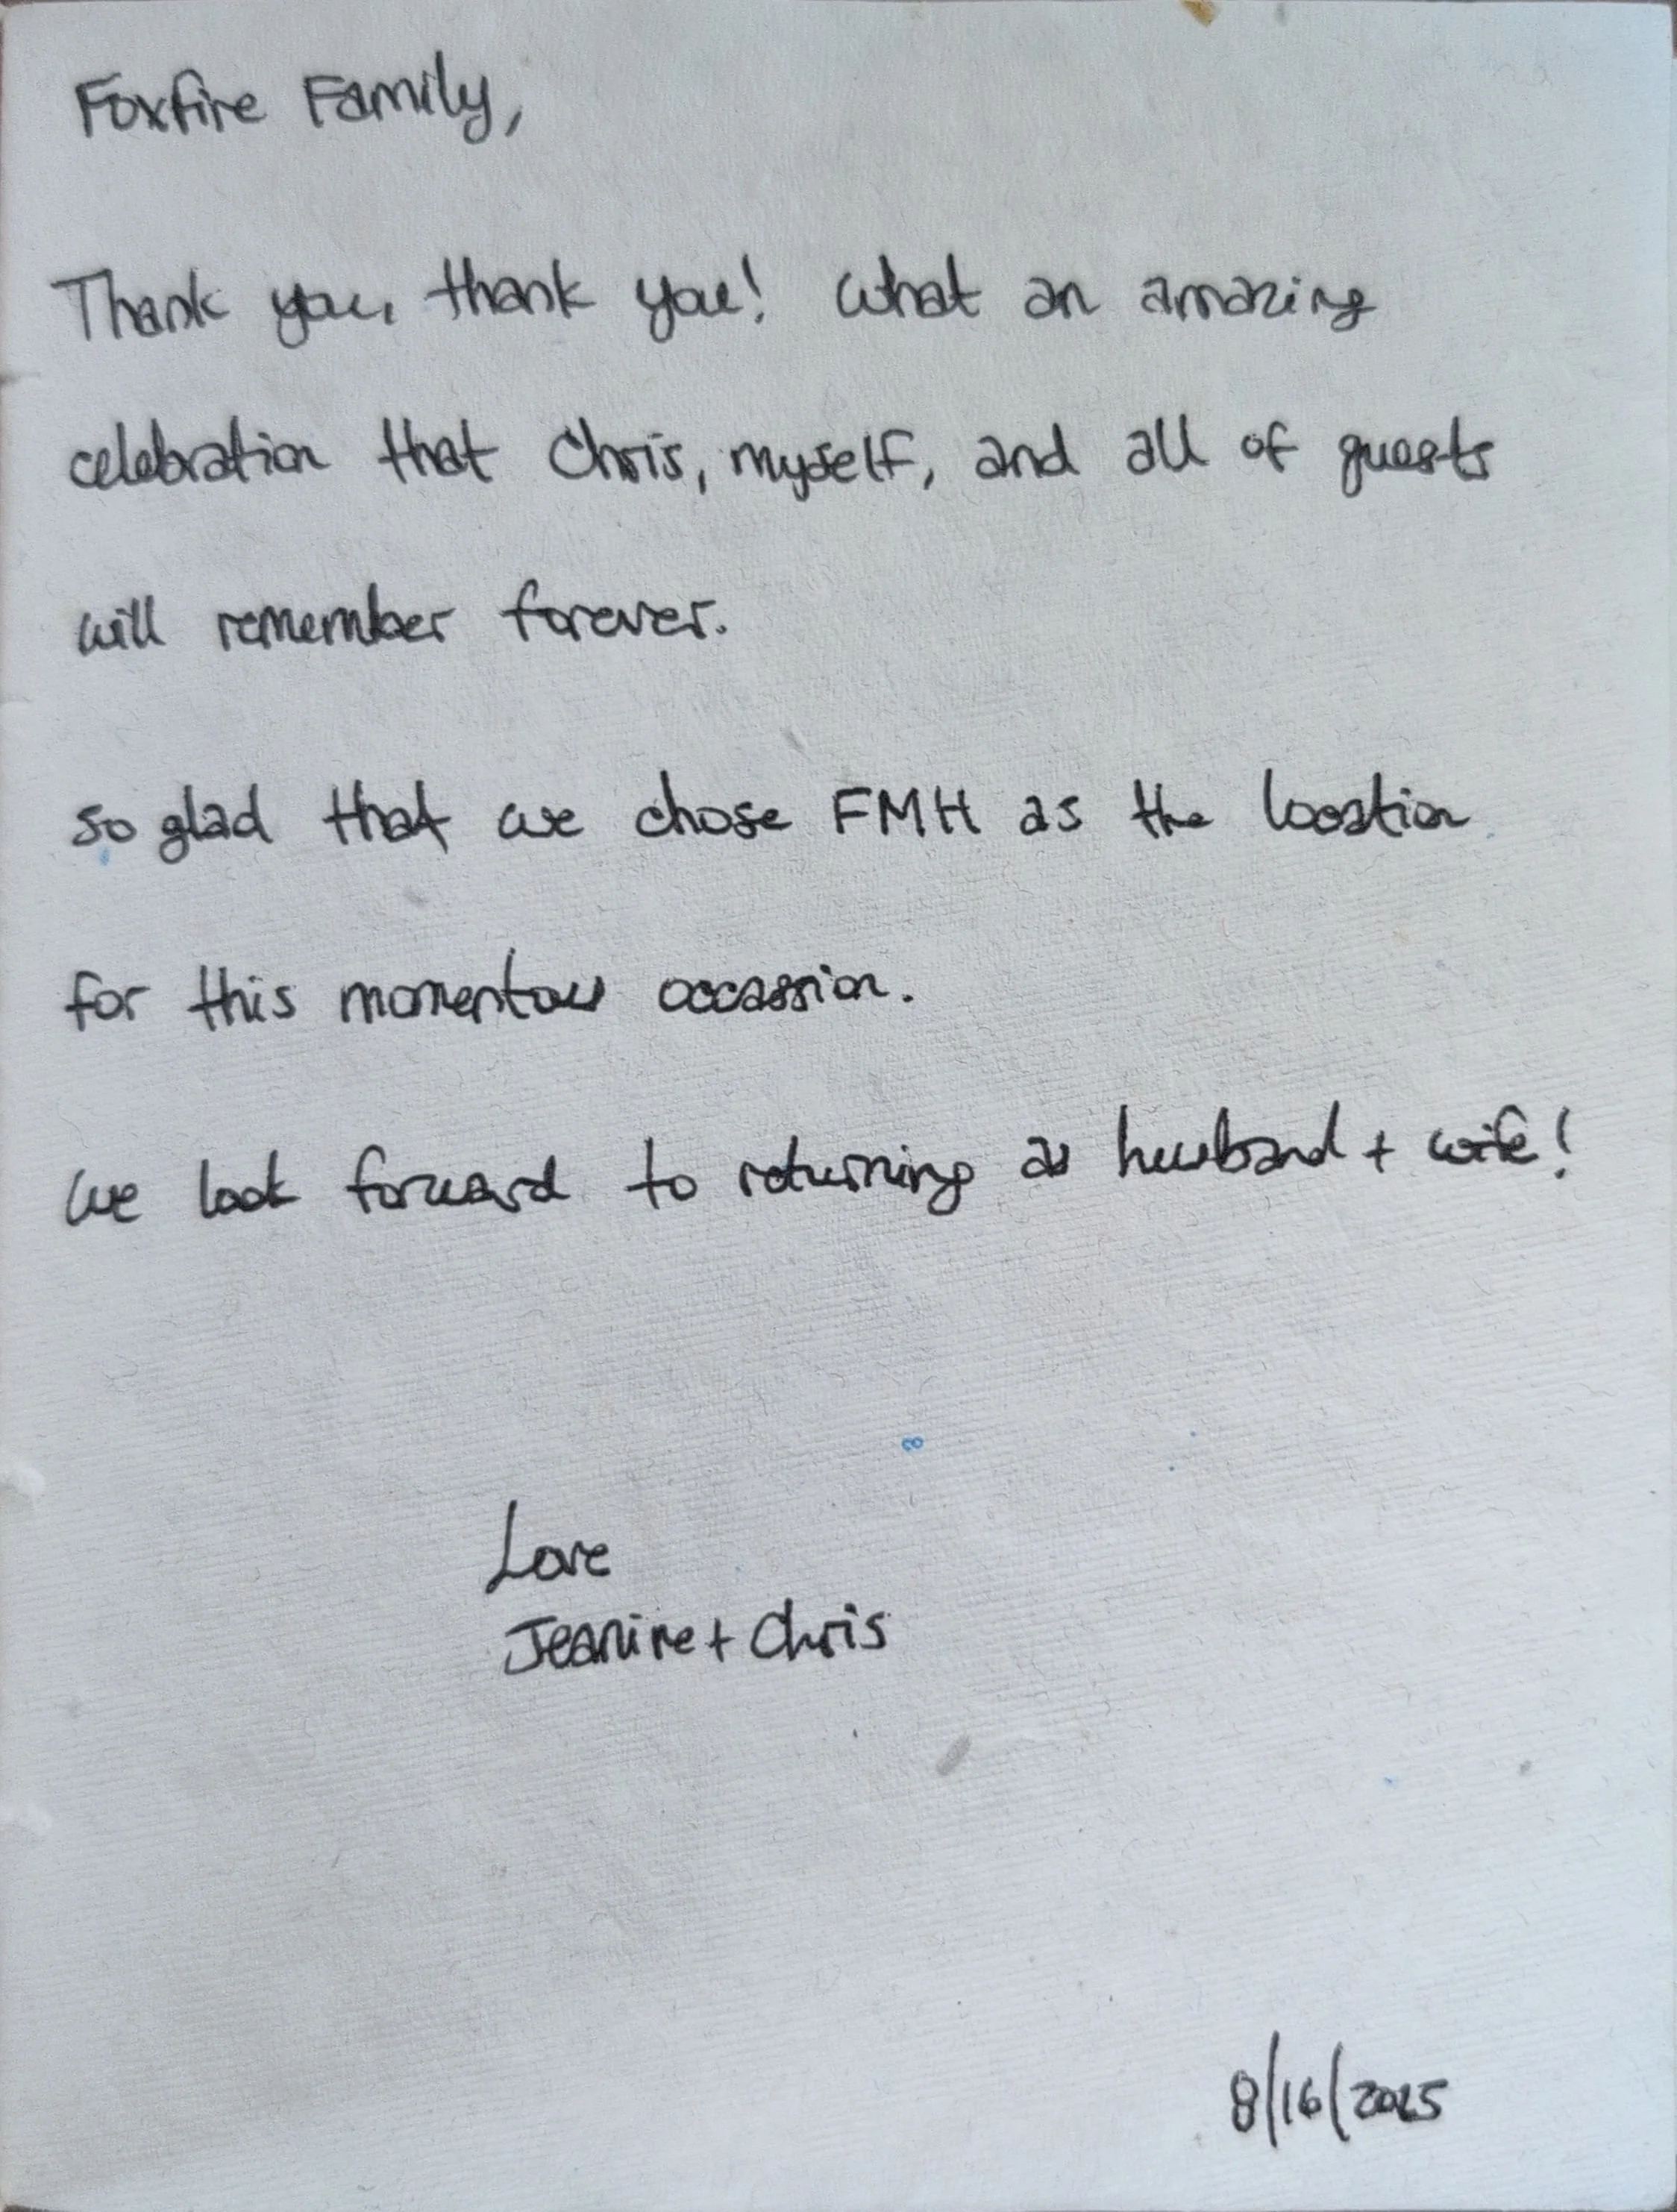 Foxfire Family,
Thank you, thank you! What an amazing
celebration that Chris, myself, and all of guests
will remember forever.
so glad that we chose FMH as the location
for this momentous occassion.
We look forward to returning as husband + wife!
Love
Jeanine + Chris
8/16/2015